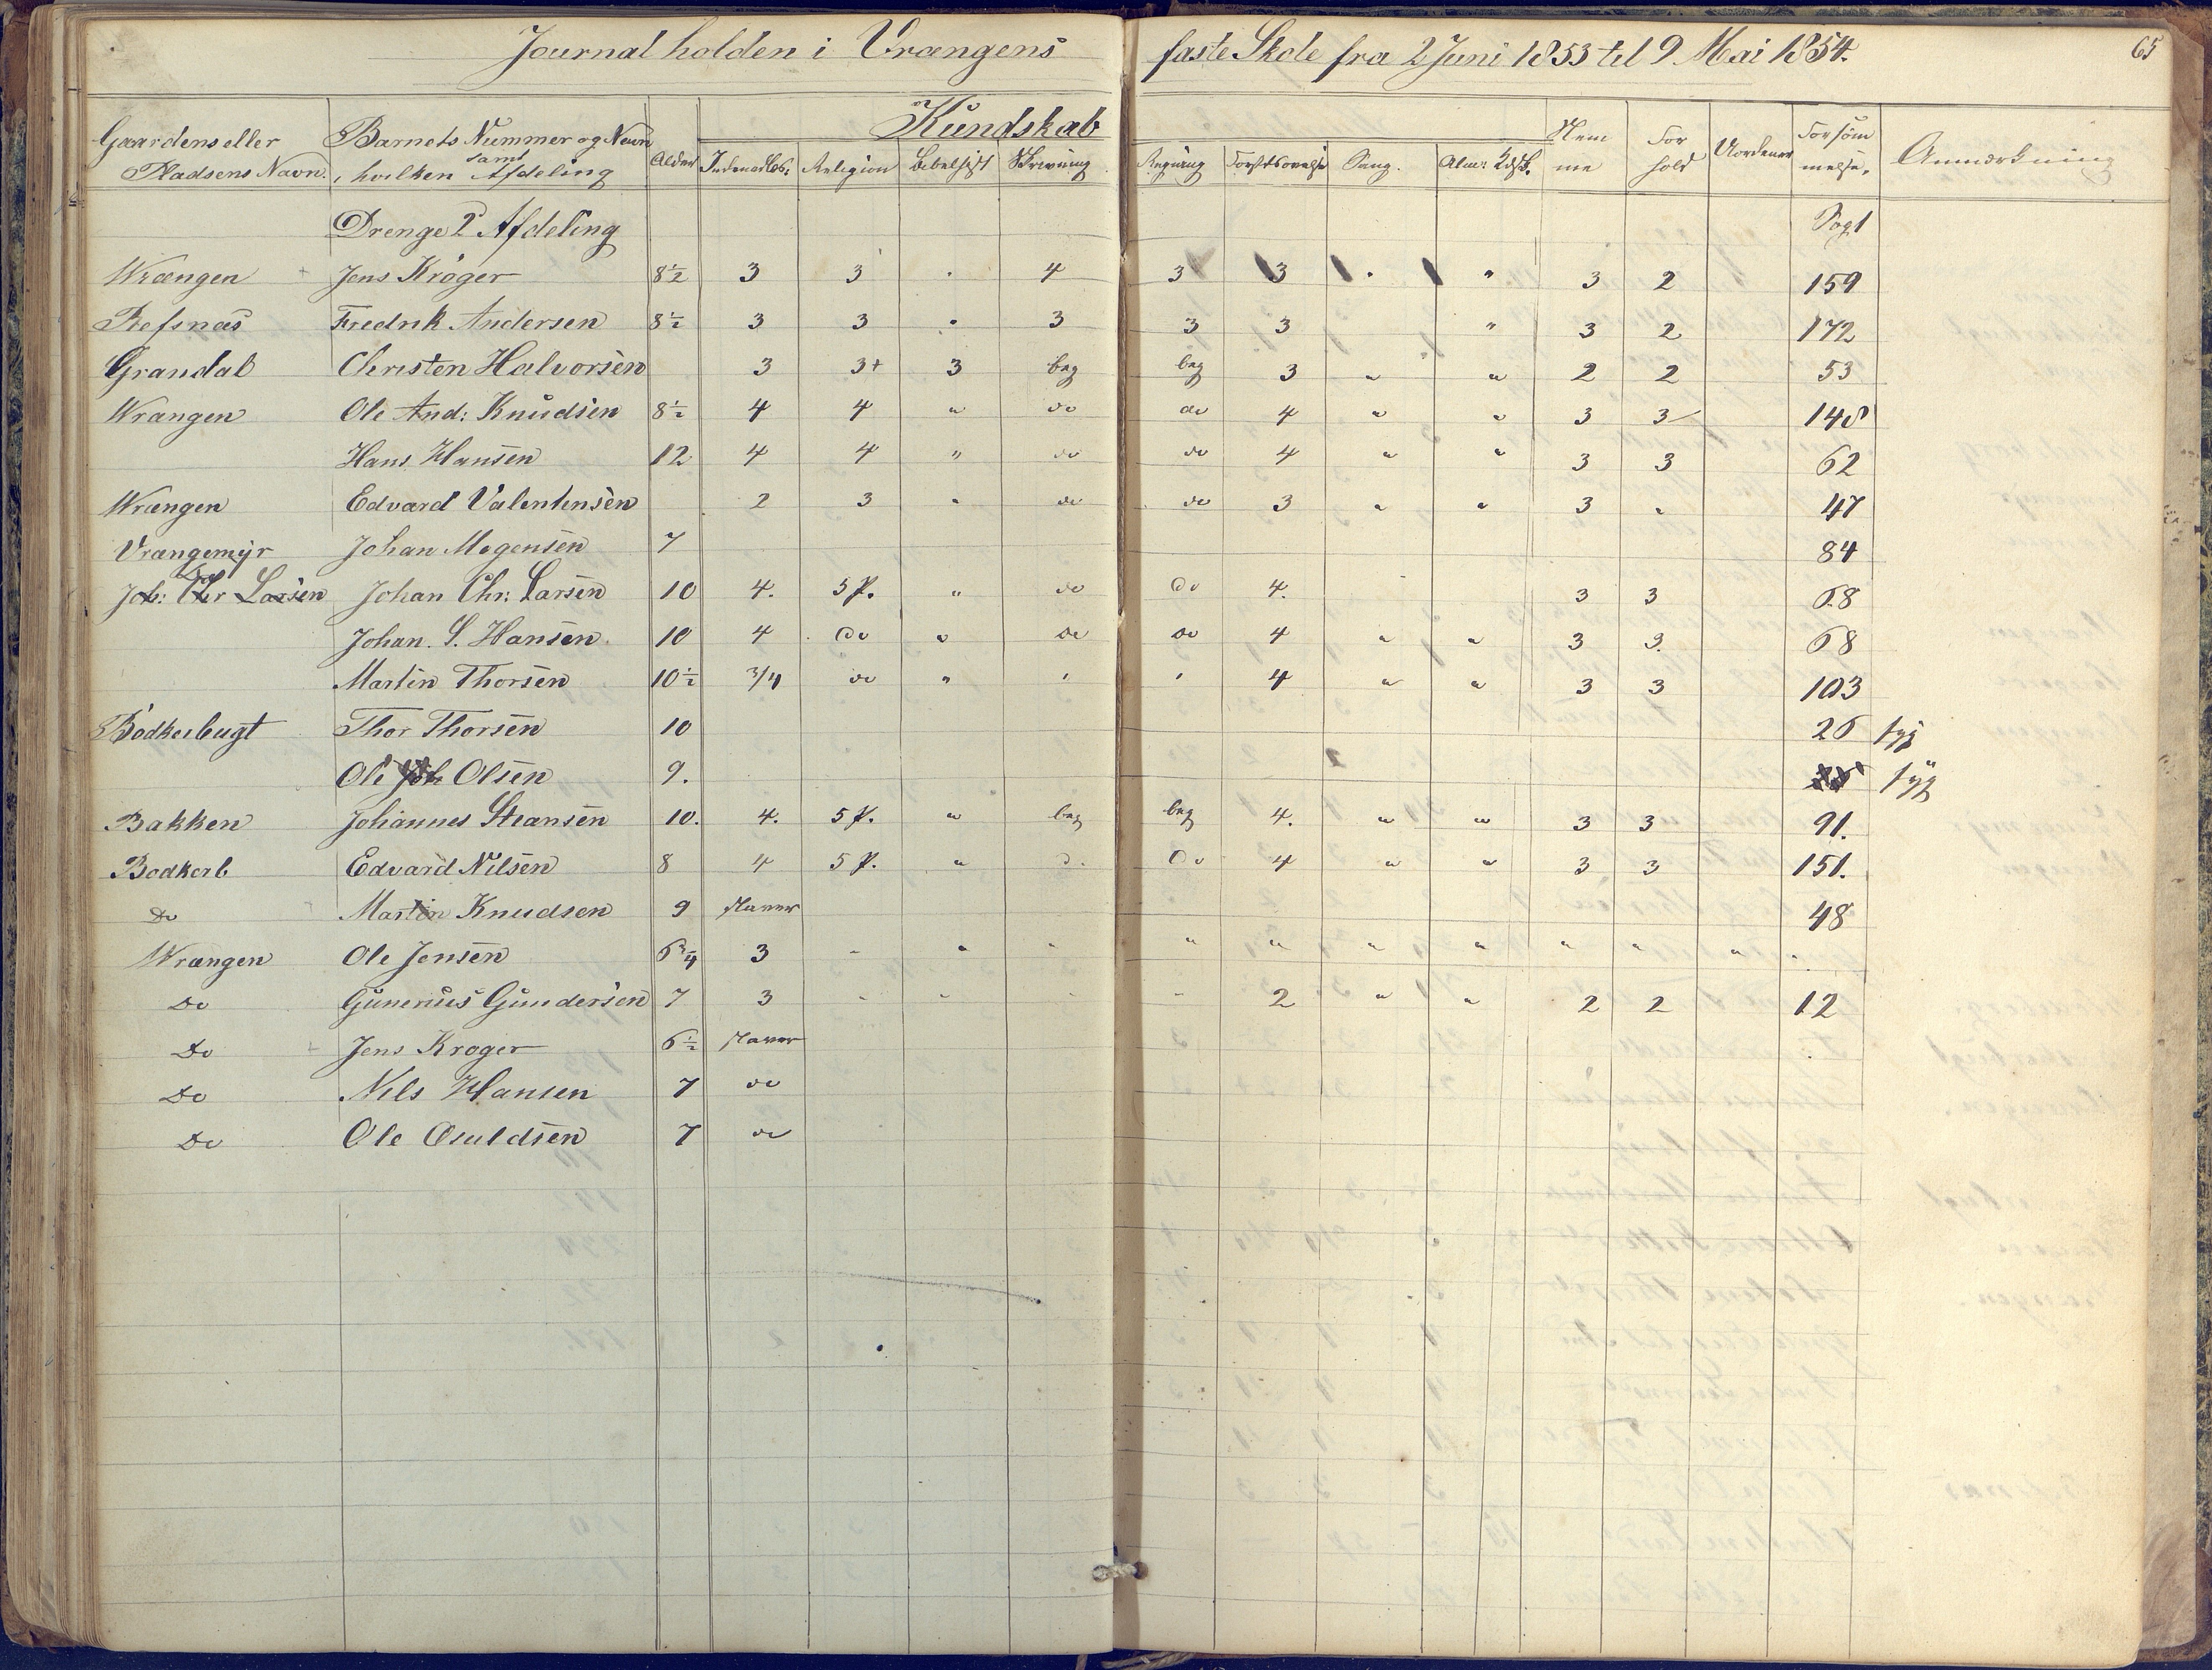 Journal holden i Vrængens faste Skole fra 2 Juni 1853 til 9 Mai 1854. 65
Gaardens eller Pladsens Navn. Barnets Nummer og Navn samt i hvilken Afdeling Alder Kundskab Religion Skrivning Regning Sang. Nemme Forhold Forsømmelse. Anmærkning
Drenge 2 Afdeling
Wrængen Jens Krøger 8½ 3 3 " 4 3 3 " " 3 2 159
Refsnæs Fredrik Andersen 8½ 3 3 " 3 3 3 " 3 2 172
Grandal Christen Halvorsen 3 3+ 3 beg beg 3 " " 2 2 53
Wrangen Ole And: Knudsen 8½ 4 4 " do do 4 " " 3 3 148
Hans Hansen 12 4 4 " do do 4 " " 3 3 62
Wrængen Edvard Valentensen 2 3 " do do 3 " " 3 " 47
Vrangemyr Johan Mogensen 7 84
Joh: Chr Larsen Johan Chr: Larsen 10 4. 5 P. " do do 4. 3 3 68
Johan. S. Hansen 10 4 do " do do 4 " " 3 3. 68
Martin Thorsen 10½ 3/4 do " " " 4 " " 3 3 103
Bødkerbugt Thor Thorsen 10 26 syg
Ole Joh Olsen 9. syg
Bakken Johannes Steansen 10. 4. 5 P. " beg beg 4. " " 3 3 91.
Bodkerb Edvard Nilsen 8 4 5 P. " d. do 4 " " 3 3 151.
do Martin Knudsen 9 Staver 48
Wrængen Ole Jensen 6¾ 3 " " " " " " " " " " "
Do Gunerius Gundersen 7 3 " " " " 2 " " 2 2 12
Do Jens Kroger 6½ Staver
Do Nils Hansen 7 do
Do Ole Osuldsen 7 do